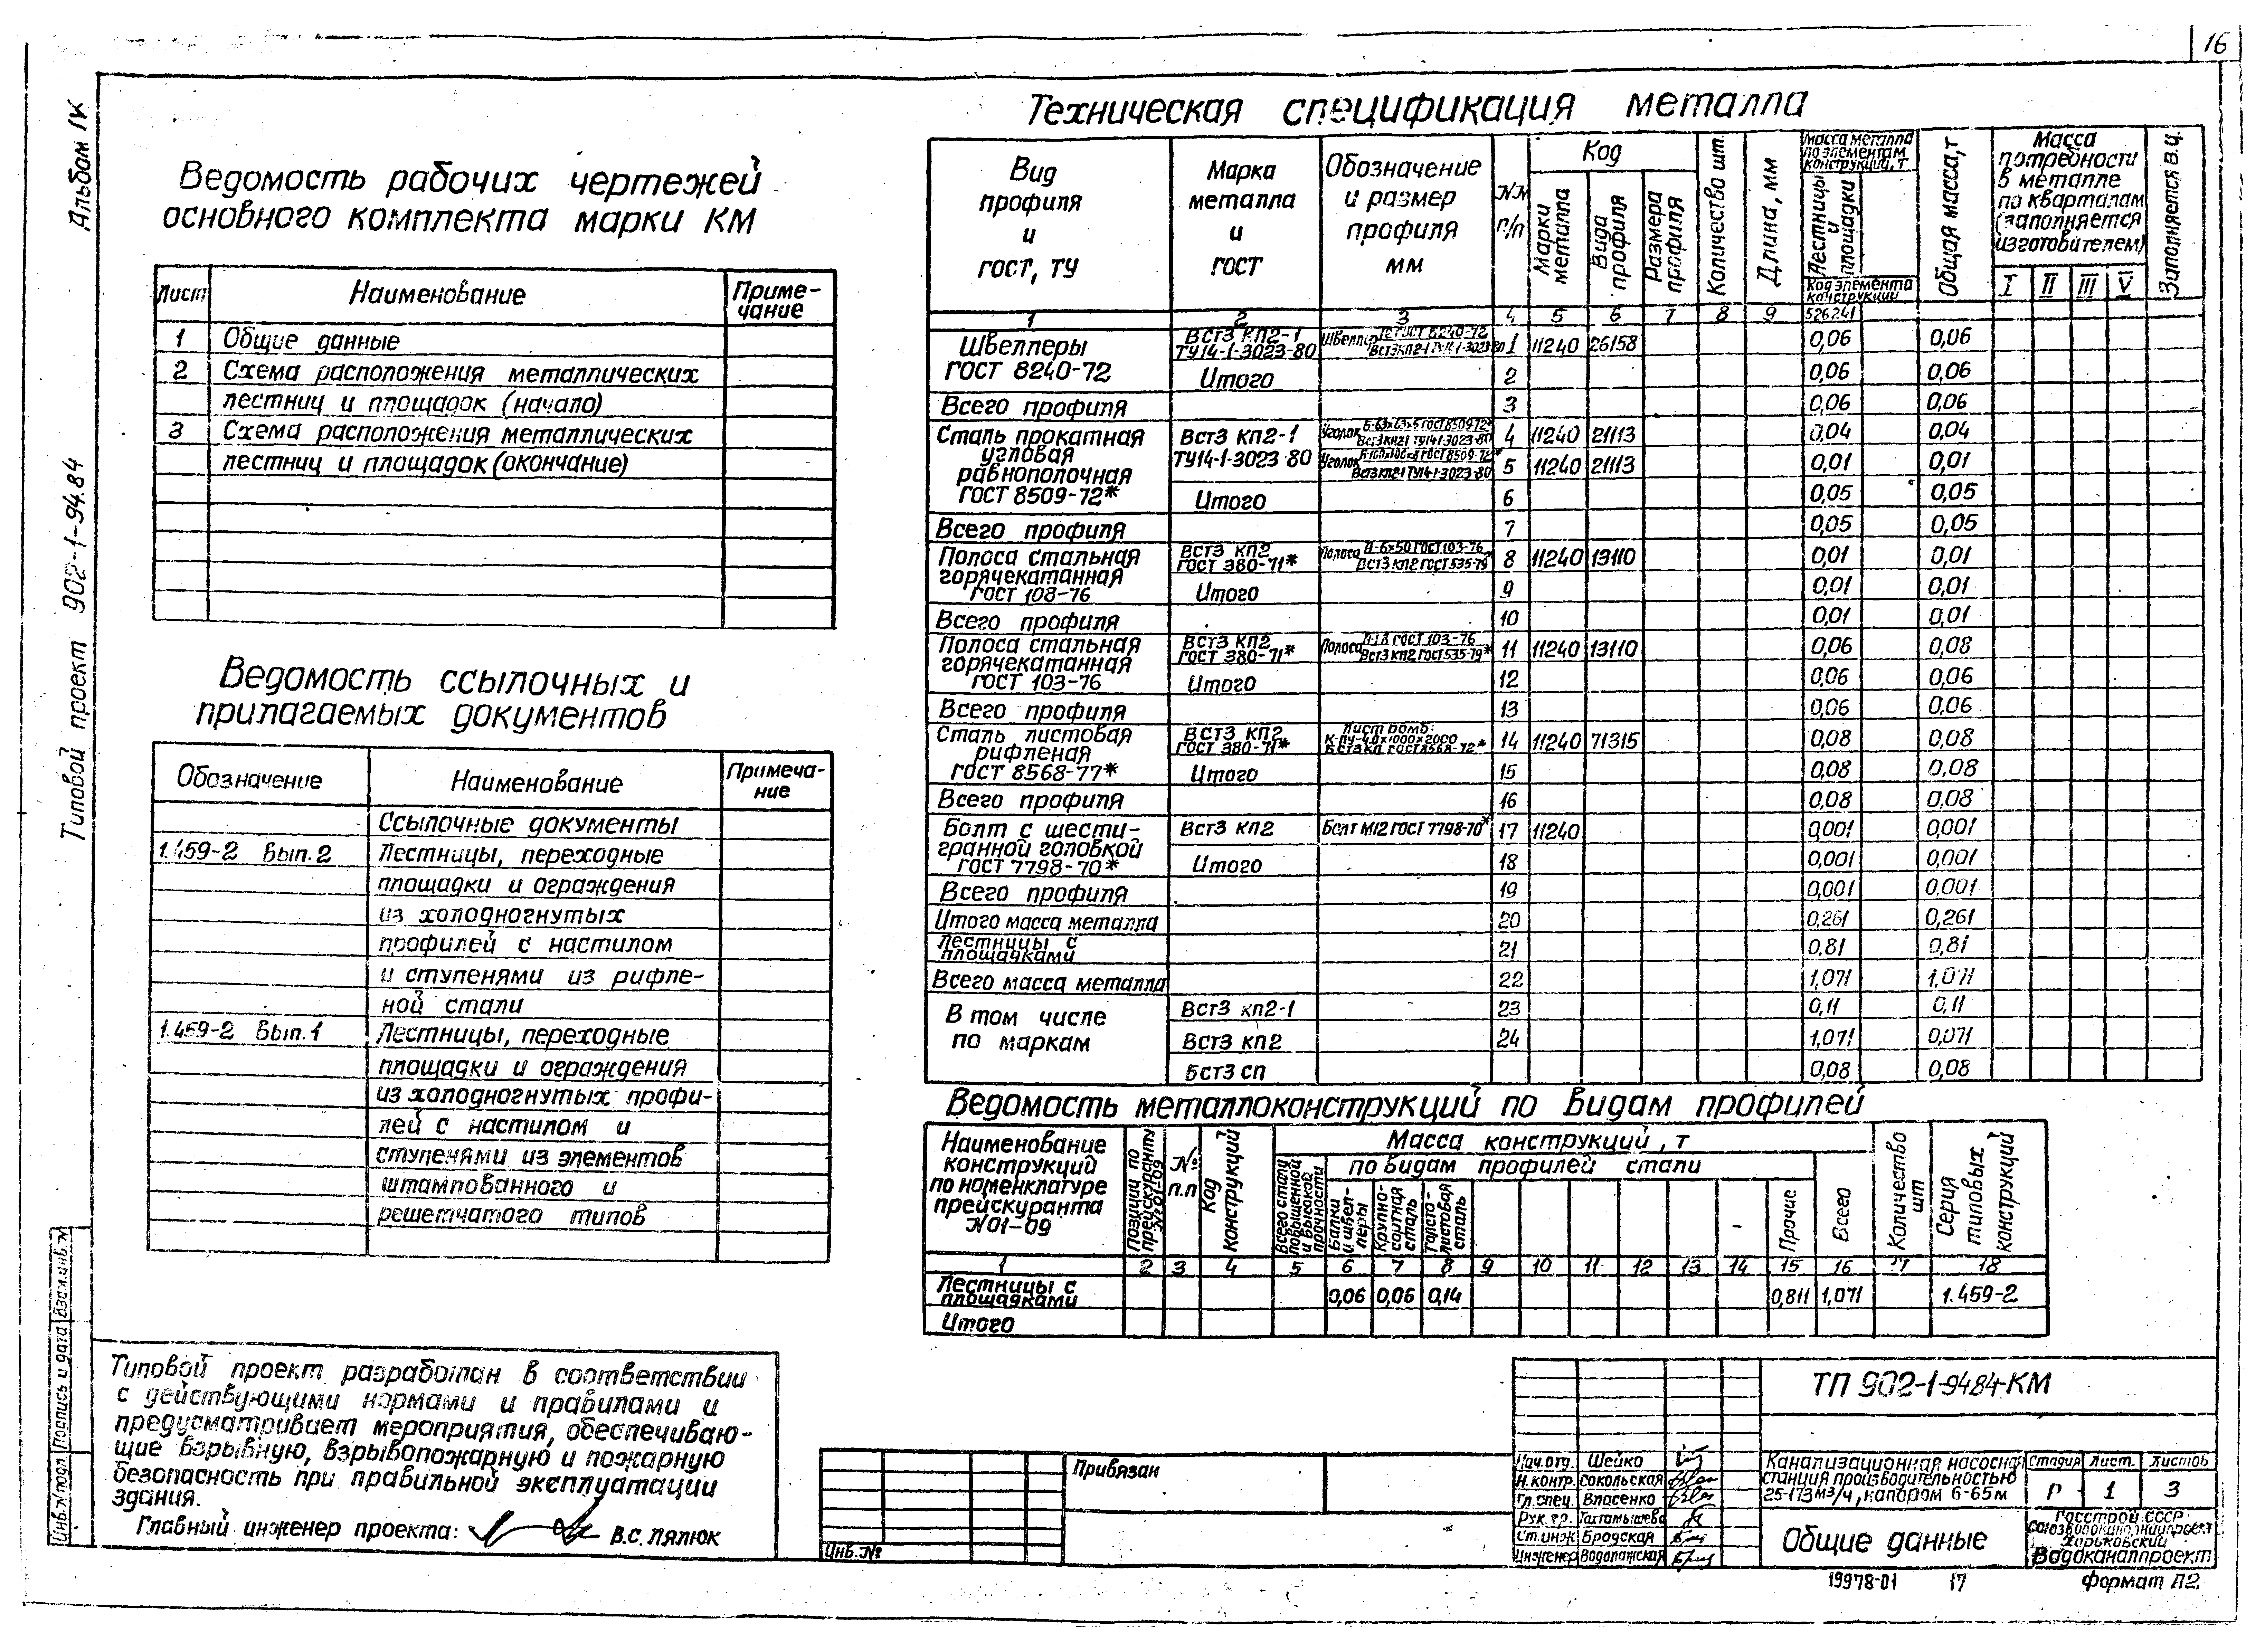 16
Альбом IV
Типовой проект 902-1-94.84
Ведомость рабочих чертежей
основного комплекта марки КМ
Лист Наименование Приме-
чание
1 Общие данные
2 Схема расположения металлических
лестниц и площадок (начало)
3 Схема расположения металлических
лестниц и площадок (окончание)
Ведомость ссылочных и
прилагаемых документов
Обозначение Наименование Примеча-
ние
Ссылочные документы
1.459-2 Вып. 2 Лестницы, переходные
площадки и ограждения
из холодногнутых
профилей с настилом
и ступенями из рифле-
ной стали
1.459-2 Вып. 1 Лестницы, переходные
площадки и ограждения
из холодногнутых профи-
лей с настилом и
ступенями из элементов
штампованного и
решетчатого типов
Техническая спецификация металла
Вид профиля и ГОСТ, ТУ
Марка металла и ГОСТ
Обозначение и размер профиля мм
NN п/п
Код
Марки металла
Вида профиля
Размера профиля
Количество шт.
Длина, мм
Масса металла по элементам конструкций, т
Лестницы и площадки
Код элемента конструкции
Общая масса, т
Масса потребности в металле по кварталам (заполняется изготовителем)
I II III V
Заполняется В.Ц.
1 2 3 4 5 6 7 8 9 526241
Швеллеры ГОСТ 8240-72 ВСт3 кп2-1 ТУ14-1-3023-80 Швеллер 1 11240 26158 0,06 0,06
Итого 2 0,06 0,06
Всего профиля 3 0,06 0,06
Сталь прокатная угловая равнополочная ГОСТ 8509-72* ВСт3 кп2-1 ТУ14-1-3023 80 Уголок Б-63х63х5 ГОСТ 8509-72* ВСт3кп21 ТУ14-1-3023-80 4 11240 21113 0,04 0,04
Уголок ВСт3кп21 ТУ14-1-3023-80 5 11240 21113 0,01 0,01
Итого 6 0,05 0,05
Всего профиля 7 0,05 0,05
Полоса стальная горячекатанная ГОСТ 108-76 ВСт3 кп2 ГОСТ 380-71* Полоса 6х50 ГОСТ 103-76 ВСт3 кп2 ГОСТ 535-79 8 11240 13110 0,01 0,01
Итого 9 0,01 0,01
Всего профиля 10 0,01 0,01
Полоса стальная горячекатанная ГОСТ 103-76 ВСт3 кп2 ГОСТ 380-71* Полоса ГОСТ 103-76 ВСт3 кп2 ГОСТ 535-79* 11 11240 13110 0,06 0,08
Итого 12 0,06 0,06
Всего профиля 13 0,06 0,06
Сталь листовая рифленая ГОСТ 8568-77* ВСт3 кп2 ГОСТ 380-71* Лист ромб. К-ПУ-4,0х1000х2000 14 11240 71315 0,08 0,08
Итого 15 0,08 0,08
Всего профиля 16 0,08 0,08
Болт с шести-
гранной головкой
ГОСТ 7798-70* ВСт3 кп2 Болт М12 ГОСТ 7798-70* 17 11240 0,001 0,001
Итого 18 0,001 0,001
Всего профиля 19 0,001 0,001
Итого масса металла 20 0,261 0,261
Лестницы с площадками 21 0,81 0,81
Всего масса металла 22 1,071 1,071
В том числе по маркам ВСт3 кп2-1 23 0,11 0,11
ВСт3 кп2 24 1,071 0,071
БСт3 сп 0,08 0,08
Ведомость металлоконструкций по видам профилей
Наименование конструкций по номенклатуре прейскуранта N01-09
Позиции по прейскуранту № 01-09
№ п.п
Код конструкций
Масса конструкций, т
Всего стали повышенной и высокой прочности
по видам профилей стали
Балки и швел-
леры
Крупно-
сортная сталь
Толсто-
листовая сталь
Прочие
Всего
Количество шт
Серия типовых конструкций
1 2 3 4 5 6 7 8 9 10 11 12 13 14 15 16 17 18
Лестницы с площадками 0,06 0,06 0,14 0,811 1,071 1.459-2
Итого
Типовой проект разработан в соответствии
с действующими нормами и правилами и
предусматривает мероприятия, обеспечиваю-
щие взрывную, взрывопожарную и пожарную
безопасность при правильной эксплуатации
здания.
Главный инженер проекта: В.С. Лялюк
Инв.N подл. Подпись и дата Взам.инв.N
Привязан
Инв. №
Нач. отд. Шейко
Н. контр. Сокольская
Гл. спец. Власенко
Рук. гр. Тахтамышева
Ст. инж Бродская
Инженер Водопажская
ТП 902-1-94.84-КМ
Канализационная насосная
станция производительностью
25-173 м³/ч, напором 6-65м
Стадия Лист. Листов
Р 1 3
Общие данные
Госстрой СССР
Союзводоканалниипроект
Харьковский
Водоканалпроект
19978-01 17 Формат А2